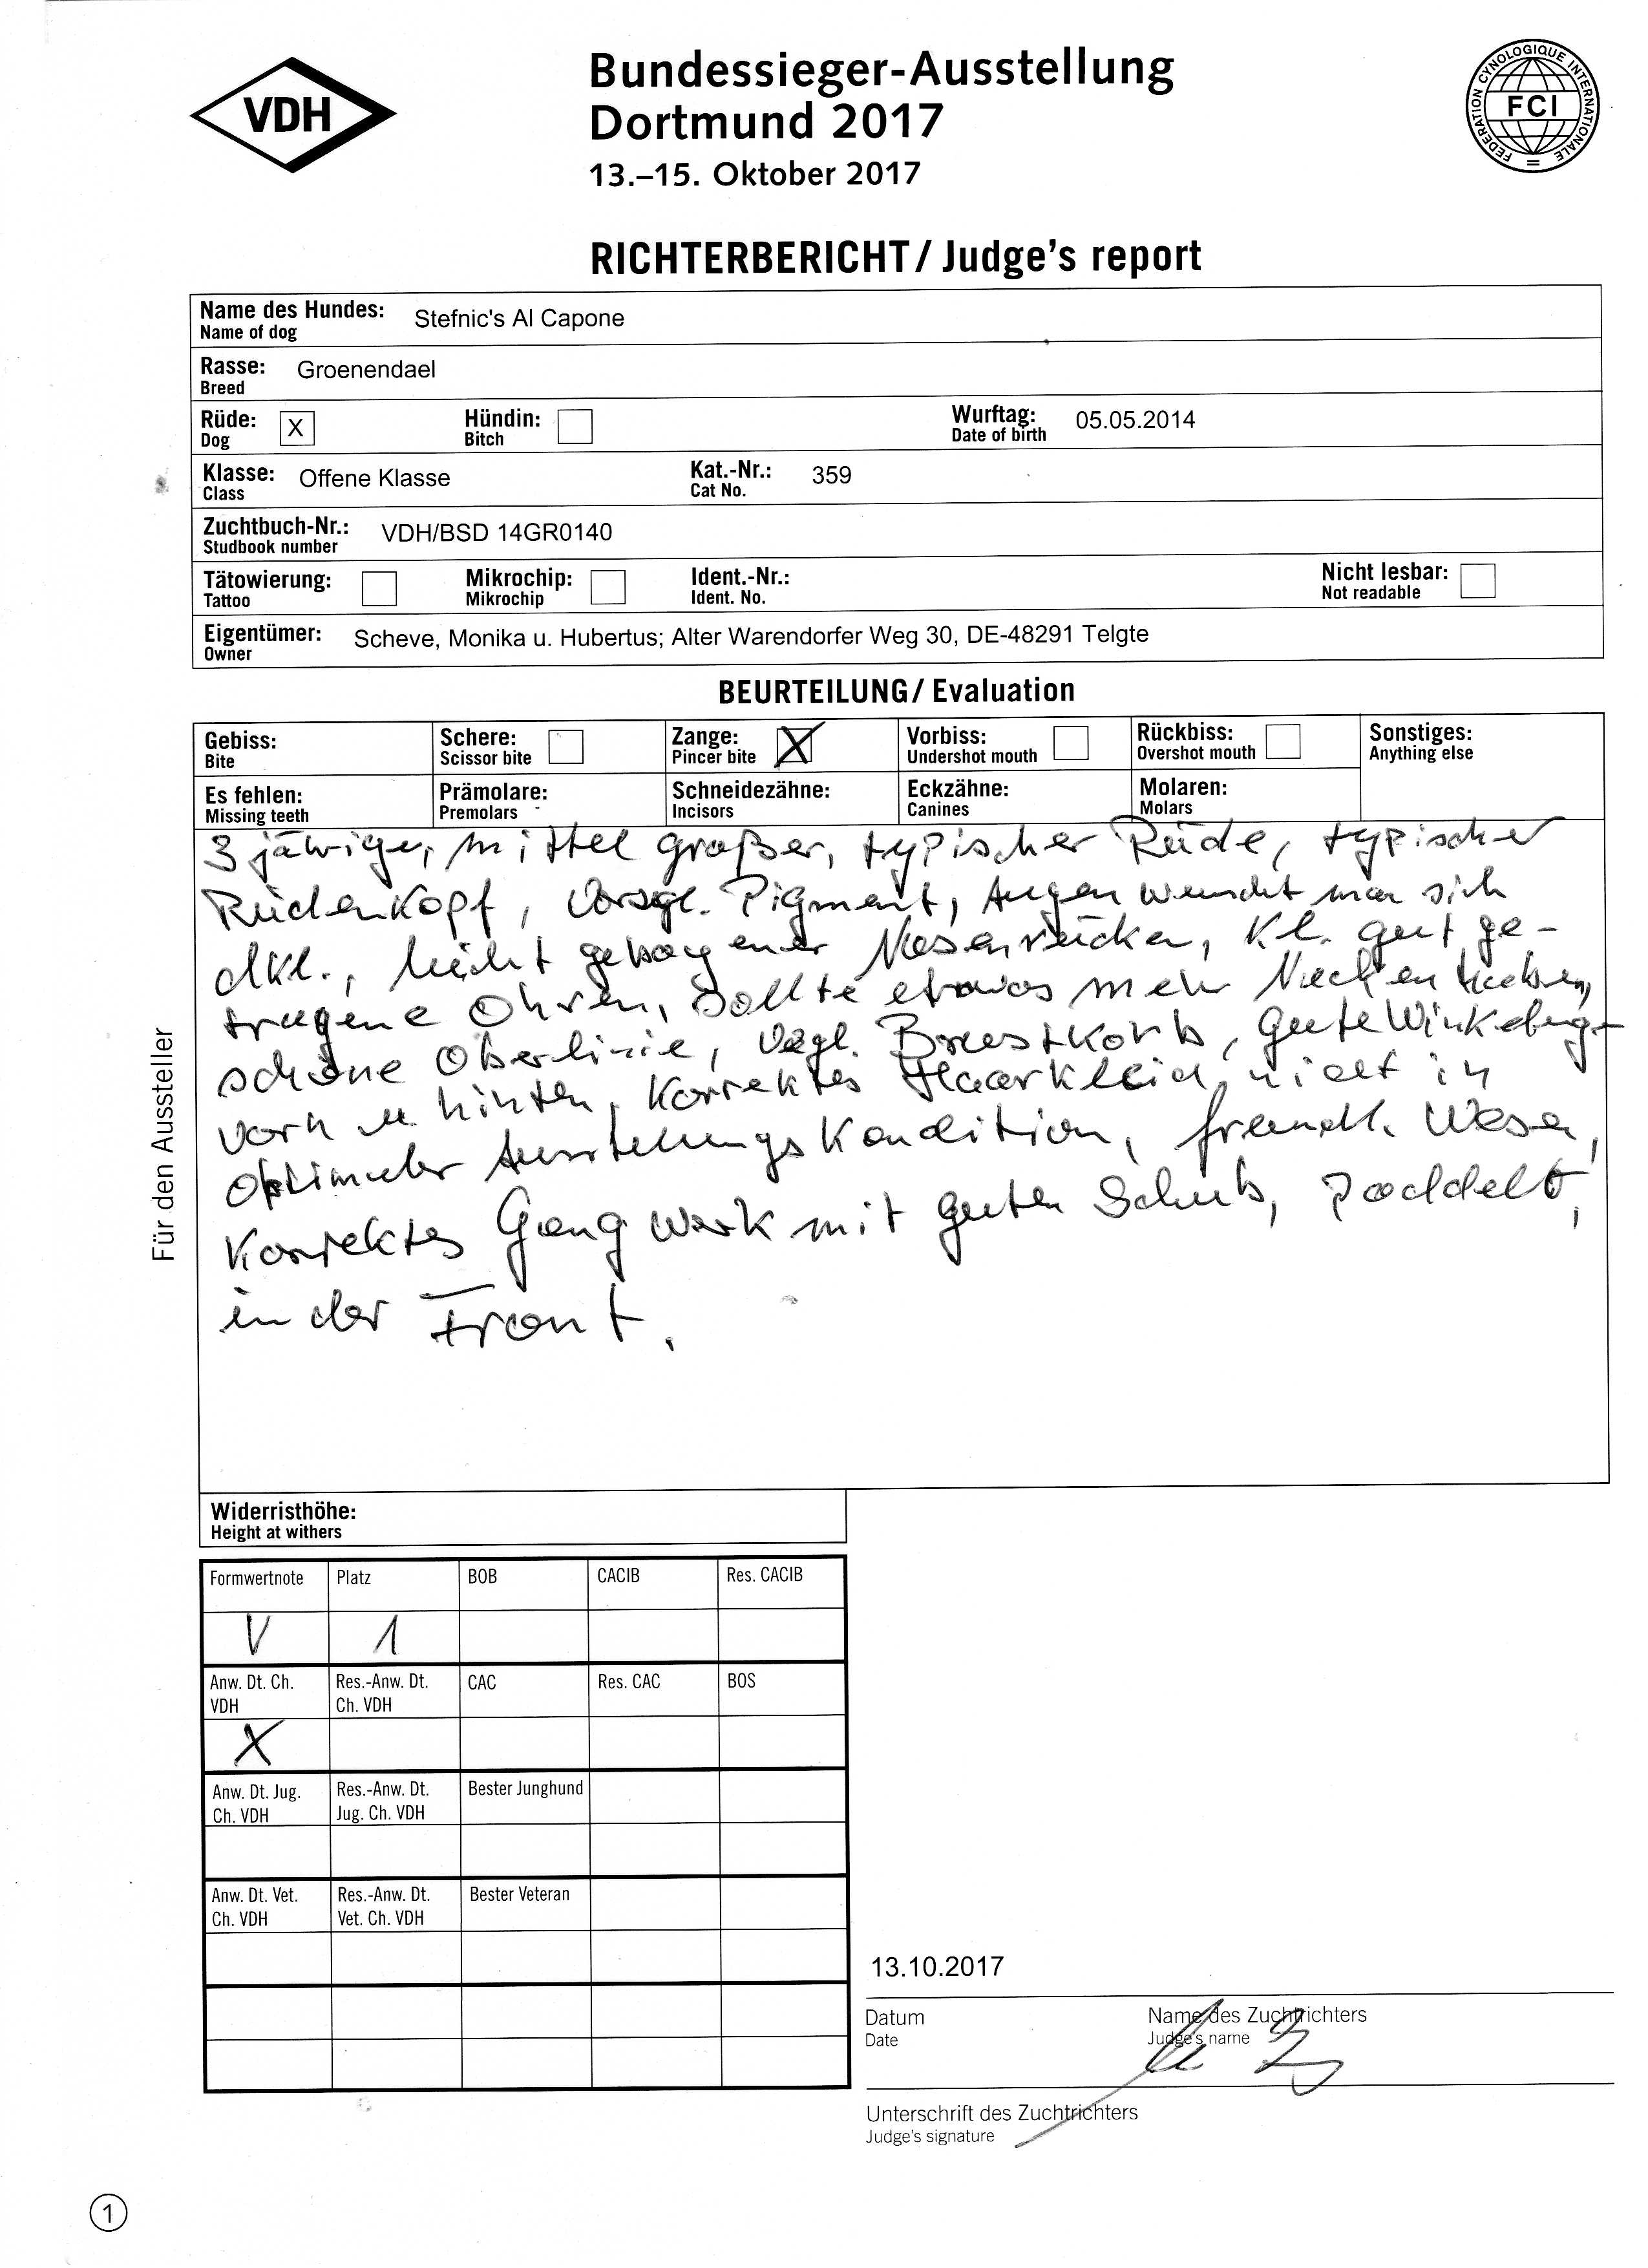 VDH
Bundessieger-Ausstellung
Dortmund 2017
13.–15. Oktober 2017
FEDERATION CYNOLOGIQUE INTERNATIONALE
FCI
RICHTERBERICHT / Judge's report
Name des Hundes: Stefnic's Al Capone
Name of dog
Rasse: Groenendael
Breed
Rüde: X Hündin: Wurftag: 05.05.2014
Dog Bitch Date of birth
Klasse: Offene Klasse Kat.-Nr.: 359
Class Cat No.
Zuchtbuch-Nr.: VDH/BSD 14GR0140
Studbook number
Tätowierung: Mikrochip: Ident.-Nr.: Nicht lesbar:
Tattoo Mikrochip Ident. No. Not readable
Eigentümer: Scheve, Monika u. Hubertus; Alter Warendorfer Weg 30, DE-48291 Telgte
Owner
BEURTEILUNG / Evaluation
Gebiss: Schere: Zange: X Vorbiss: Rückbiss: Sonstiges:
Bite Scissor bite Pincer bite Undershot mouth Overshot mouth Anything else
Es fehlen: Prämolare: Schneidezähne: Eckzähne: Molaren:
Missing teeth Premolars Incisors Canines Molars
3 jähriger, mittel großer, typischer Rüde, typischer
Rüdenkopf, Pigment, Augen wünscht man sich
dkl., leicht gebogener Nasenrücken, kl. gut ge-
tragene Ohren, sollte etwas mehr Nacken haben,
schöne Oberlinie, Brustkorb, gute Winkelung
vorn u hinten, korrektes Haarkleid, nicht in
optimaler Ausstellungskondition, freundl. Wesen,
korrektes Gangwerk mit guten Schub, paddelt,
in der Front.
Für den Aussteller
Widerristhöhe:
Height at withers
Formwertnote Platz BOB CACIB Res. CACIB
V 1
Anw. Dt. Ch. Res.-Anw. Dt. CAC Res. CAC BOS
VDH Ch. VDH
X
Anw. Dt. Jug. Res.-Anw. Dt. Bester Junghund
Ch. VDH Jug. Ch. VDH
Anw. Dt. Vet. Res.-Anw. Dt. Bester Veteran
Ch. VDH Vet. Ch. VDH
13.10.2017
Datum Name des Zuchtrichters
Date Judge's name
Unterschrift des Zuchtrichters
Judge's signature
1